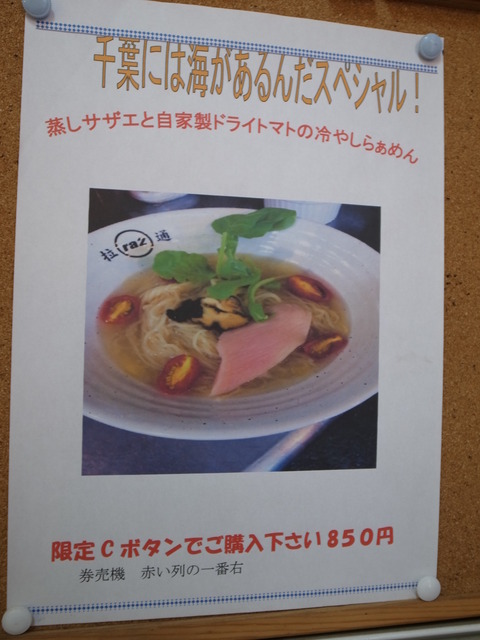 千葉には海があるんだスペシャル！
蒸しサザエと自家製ドライトマトの冷やしらぁめん
拉 raz 通
限定Cボタンでご購入下さい850円
券売機　赤い列の一番右